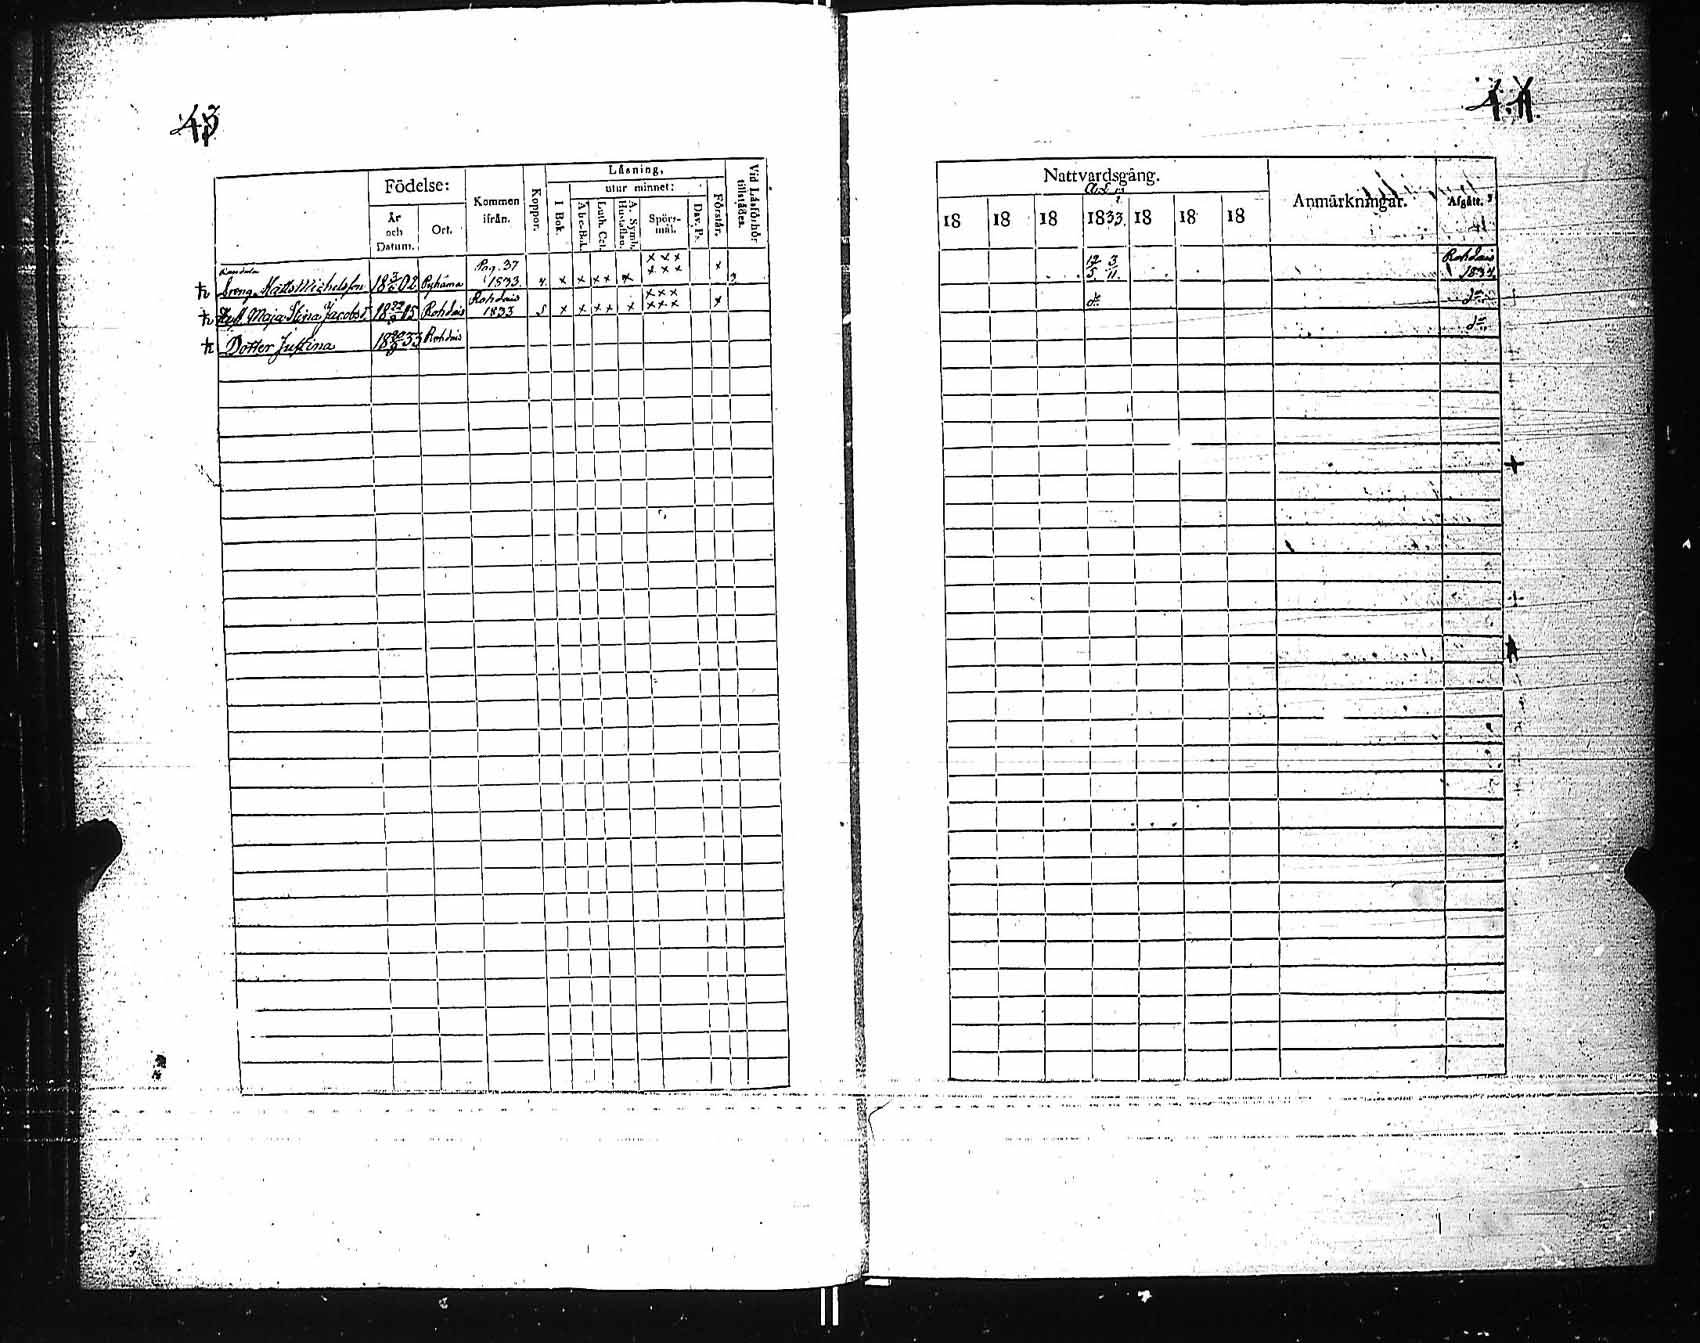 43
Födelse:
År och Datum.
Ort.
Kommen ifrån.
Koppor.
Läsning,
utur minnet:
I Bok.
Abc-Bok.
Luth. Cat.
A. Symb. Hustaflan.
Spörsmål.
Dav. Ps.
Förstår.
Vid Läsförhör tillstädes.
Pag. 37
Dreng Matts Michelsson 18 3/5 02 Pyhäma 1833. 4. x x x x x x x x x x x x 3
Rohdais
Hust. Maja Stina Jacobsd 18 05 Rohdais 1833 5 x x x x x x x x x x x x
Dotter Justina 18 33 Rohdais
Nattvardsgång.
18 18 18 1833. 18 18 18
Anmärkningar.
Afgått.
12 3
5 11.
Rohdais
1834